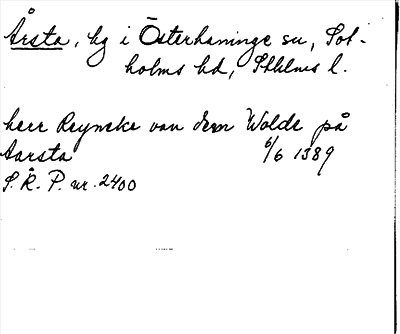 Årsta, hg i Österhaninge sn, Sot-
holms hd, Sthlms l.
herr Reyneke van dem Wolde på
Aarsta 6/6 1389
S. R. P. nr. 2400